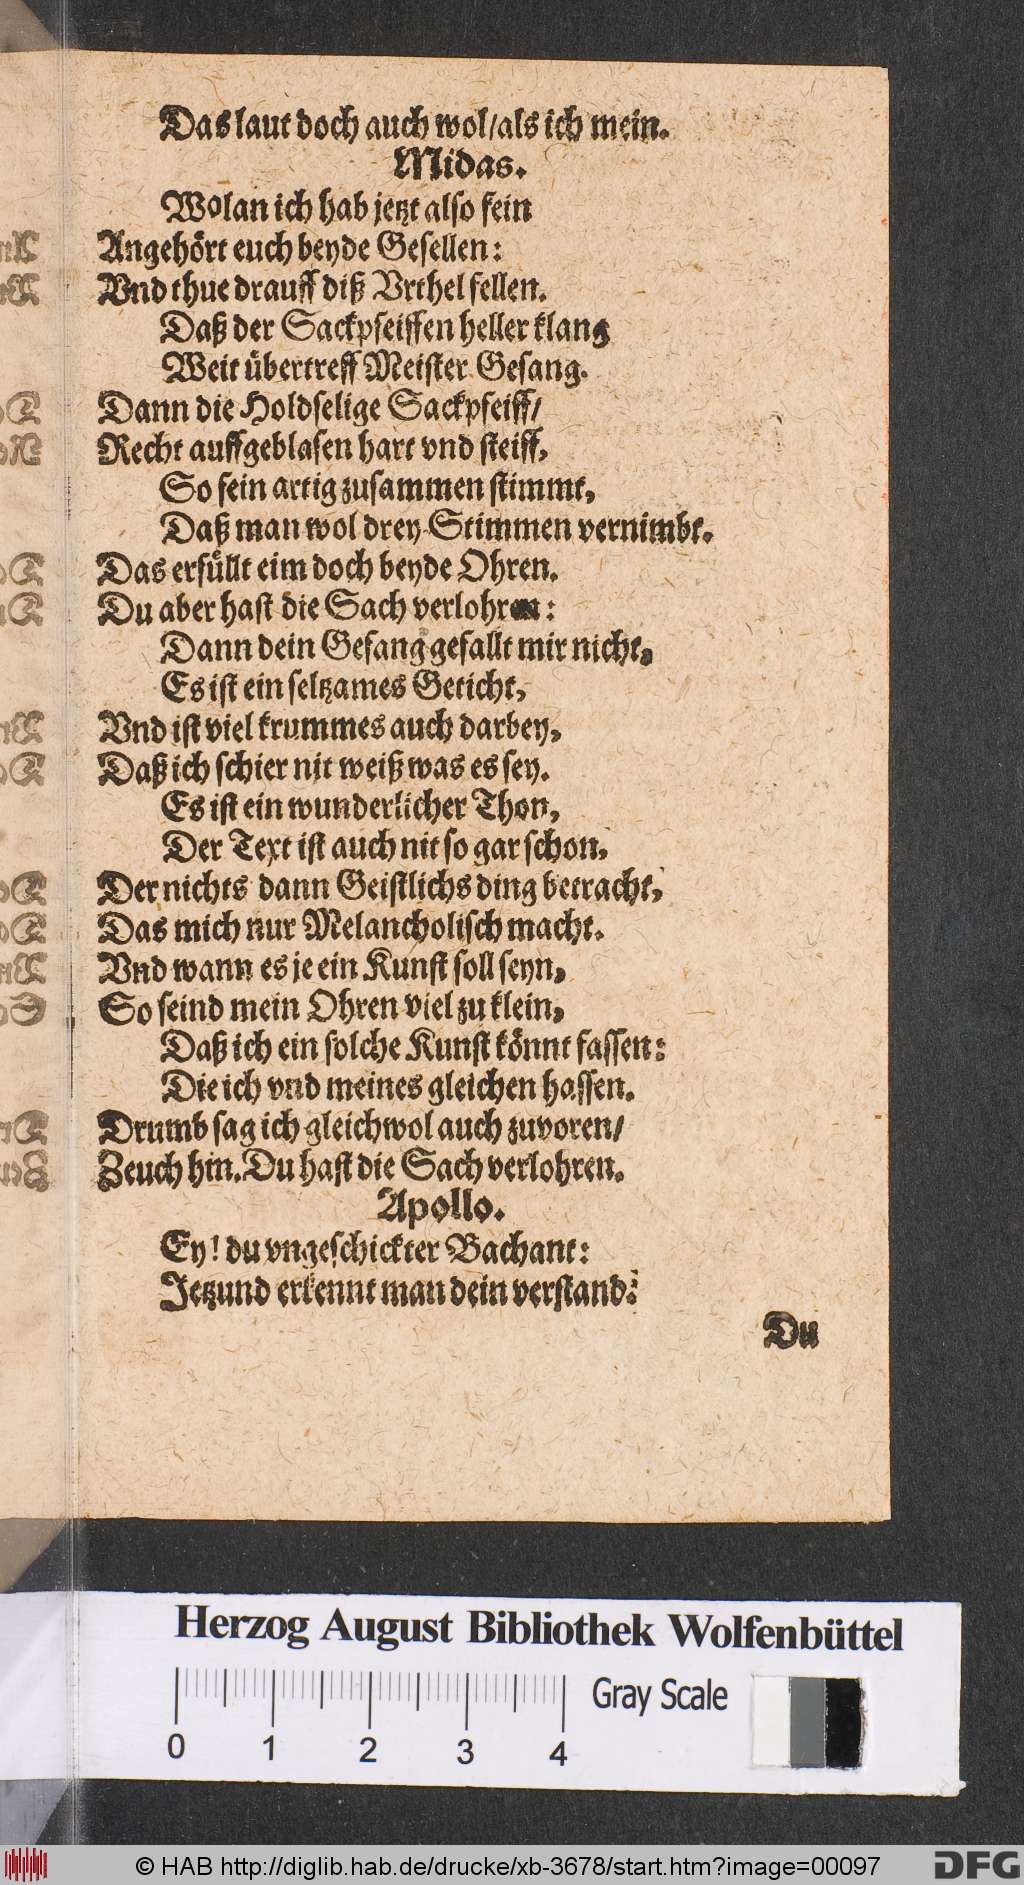 Das laut doch auch wol/als ich mein.
Midas.
Wolan ich hab jetzt also fein
Angehört euch beyde Gesellen:
Vnd thue drauff diß Vrthel fellen.
Daß der Sackpfeiffen heller klang
Weit übertreff Meister Gesang.
Dann die Holdselige Sackpfeiff/
Recht auffgeblasen hart vnd steiff,
So fein artig zusammen stimmt,
Daß man wol drey Stimmen vernimbt.
Das erfüllt eim doch beyde Ohren.
Du aber hast die Sach verlohren:
Dann dein Gesang gefallt mir nicht,
Es ist ein seltzames Geticht,
Vnd ist viel krummes auch darbey,
Daß ich schier nit weiß was es sey.
Es ist ein wunderlicher Thon,
Der Text ist auch nit so gar schon,
Der nichts dann Geistlichs ding betracht,
Das mich nur Melancholisch macht.
Vnd wann es je ein Kunst soll seyn,
So seind mein Ohren viel zu klein,
Daß ich ein solche Kunst könnt fassen:
Die ich vnd meines gleichen hassen.
Drumb sag ich gleichwol auch zuvoren/
Zeuch hin. Du hast die Sach verlohren.
Apollo.
Ey! du vngeschickter Bachant:
Jetzund erkennt man dein verstand:
Du
Herzog August Bibliothek Wolfenbüttel
Gray Scale
0 1 2 3 4
© HAB http://diglib.hab.de/drucke/xb-3678/start.htm?image=00097
DFG